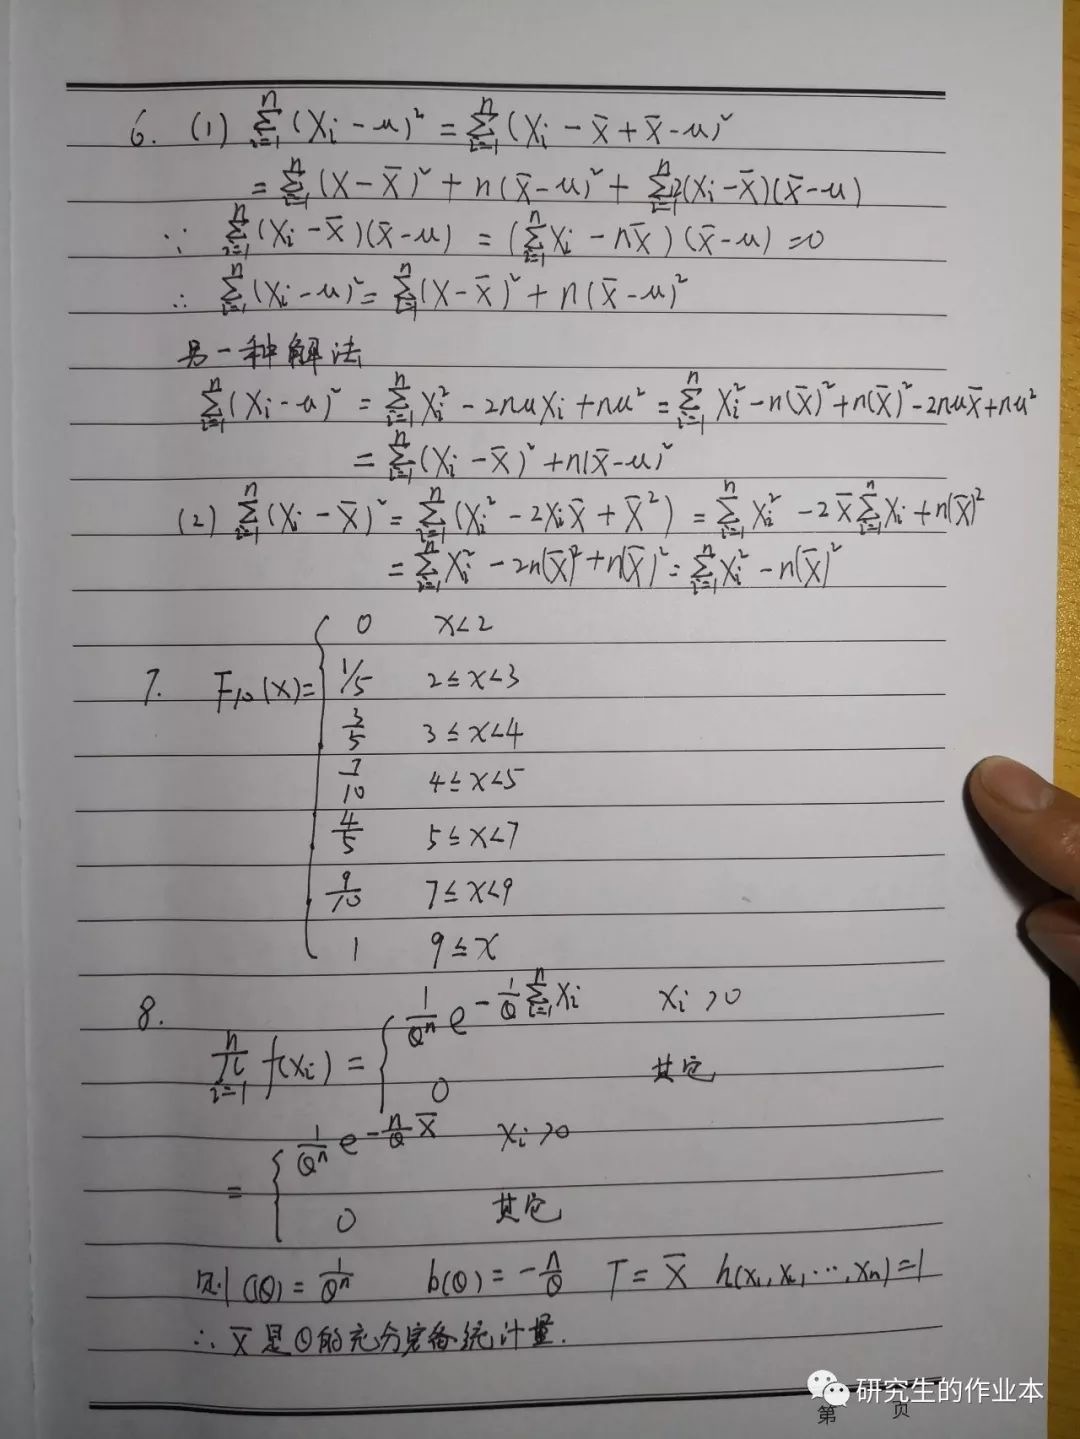 6. (1) $\sum_{i=1}^{n}(X_i-u)^2=\sum_{i=1}^{n}(X_i-\bar{X}+\bar{X}-u)^2$
$=\sum_{i=1}^{n}(X-\bar{X})^2+n(\bar{X}-u)^2+\sum_{i=1}^{n}2(X_i-\bar{X})(\bar{X}-u)$
∵ $\sum_{i=1}^{n}(X_i-\bar{X})(\bar{X}-u)=(\sum_{i=1}^{n}X_i-n\bar{X})(\bar{X}-u)=0$
∴ $\sum_{i=1}^{n}(X_i-u)^2=\sum_{i=1}^{n}(X-\bar{X})^2+n(\bar{X}-u)^2$
另一种解法
$\sum_{i=1}^{n}(X_i-u)^2=\sum_{i=1}^{n}X_i^2-2nuX_i+nu^2=\sum_{i=1}^{n}X_i^2-n(\bar{X})^2+n(\bar{X})^2-2nu\bar{X}+nu^2$
$=\sum_{i=1}^{n}(X_i-\bar{X})^2+n(\bar{X}-u)^2$
(2) $\sum_{i=1}^{n}(X_i-\bar{X})^2=\sum_{i=1}^{n}(X_i^2-2X_i\bar{X}+\bar{X}^2)=\sum_{i=1}^{n}X_i^2-2\bar{X}\sum_{i=1}^{n}X_i+n(\bar{X})^2$
$=\sum_{i=1}^{n}X_i^2-2n(\bar{X})^2+n(\bar{X})^2=\sum_{i=1}^{n}X_i^2-n(\bar{X})^2$
0 x<2
7. $F_{10}(x)=$ 1/5 2≤x<3
$\frac{3}{5}$ 3≤x<4
$\frac{7}{10}$ 4≤x<5
$\frac{4}{5}$ 5≤x<7
$\frac{9}{10}$ 7≤x<9
1 9≤x
8.
$\prod_{i=1}^{n}f(x_i)=$ $\frac{1}{\theta^n}e^{-\frac{1}{\theta}\sum_{i=1}^{n}X_i}$ $x_i>0$
0 其它
= $\frac{1}{\theta^n}e^{-\frac{n}{\theta}\bar{X}}$ $x_i>0$
0 其它
则 $C(\theta)=\frac{1}{\theta^n}$ $b(\theta)=-\frac{n}{\theta}$ $T=\bar{X}$ $h(x_1,x_2,\cdots,x_n)=1$
∴ $\bar{X}$是θ的充分完备统计量.
研究生的作业本
第 页